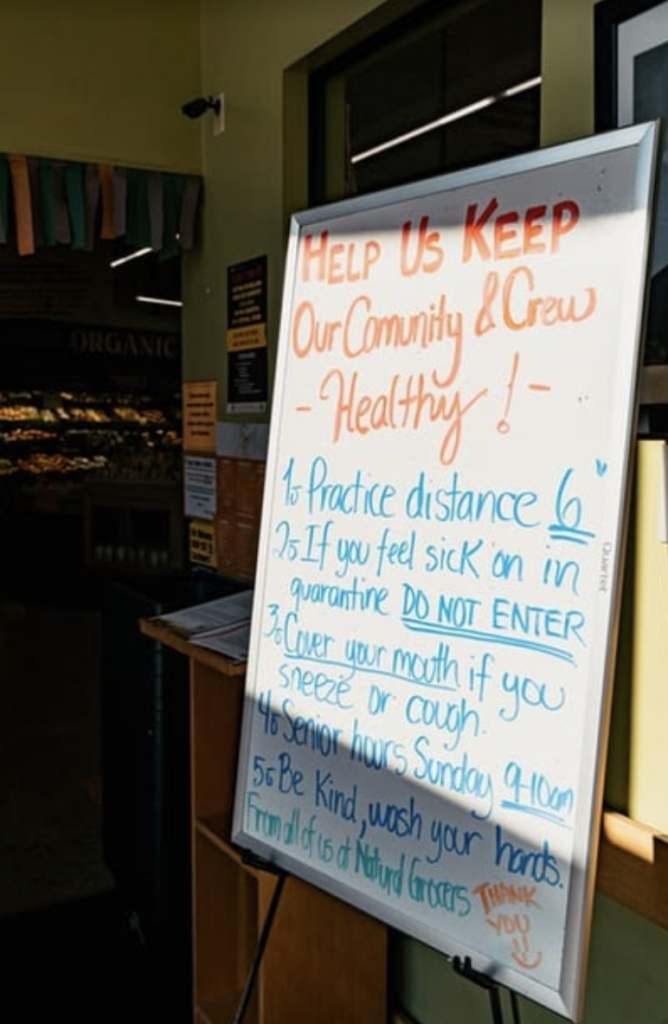 HELP US KEEP
Our Comunity & Crew
- Healthy! -
1. Practice distance 6'
2. If you feel sick on in
quarantine DO NOT ENTER
3. Cover your mouth if you
sneeze or cough.
4. Senior hours Sunday 9-10am
5. Be Kind, wash your hands.
From all of us at Natural Grocers
THANK
YOU
Quartet
ORGANIC